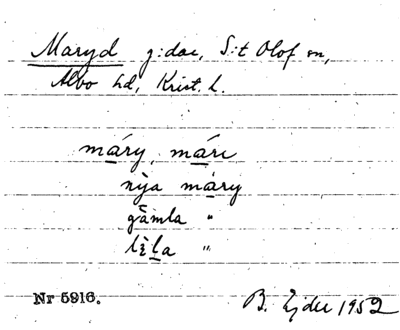 Maryd g:dar, S:t Olof sn,
Albo hd, Krist. l.
máry, mári
nỳa máry
gàmla "
lìla "
Nr 5916.
B. Ejder 1952